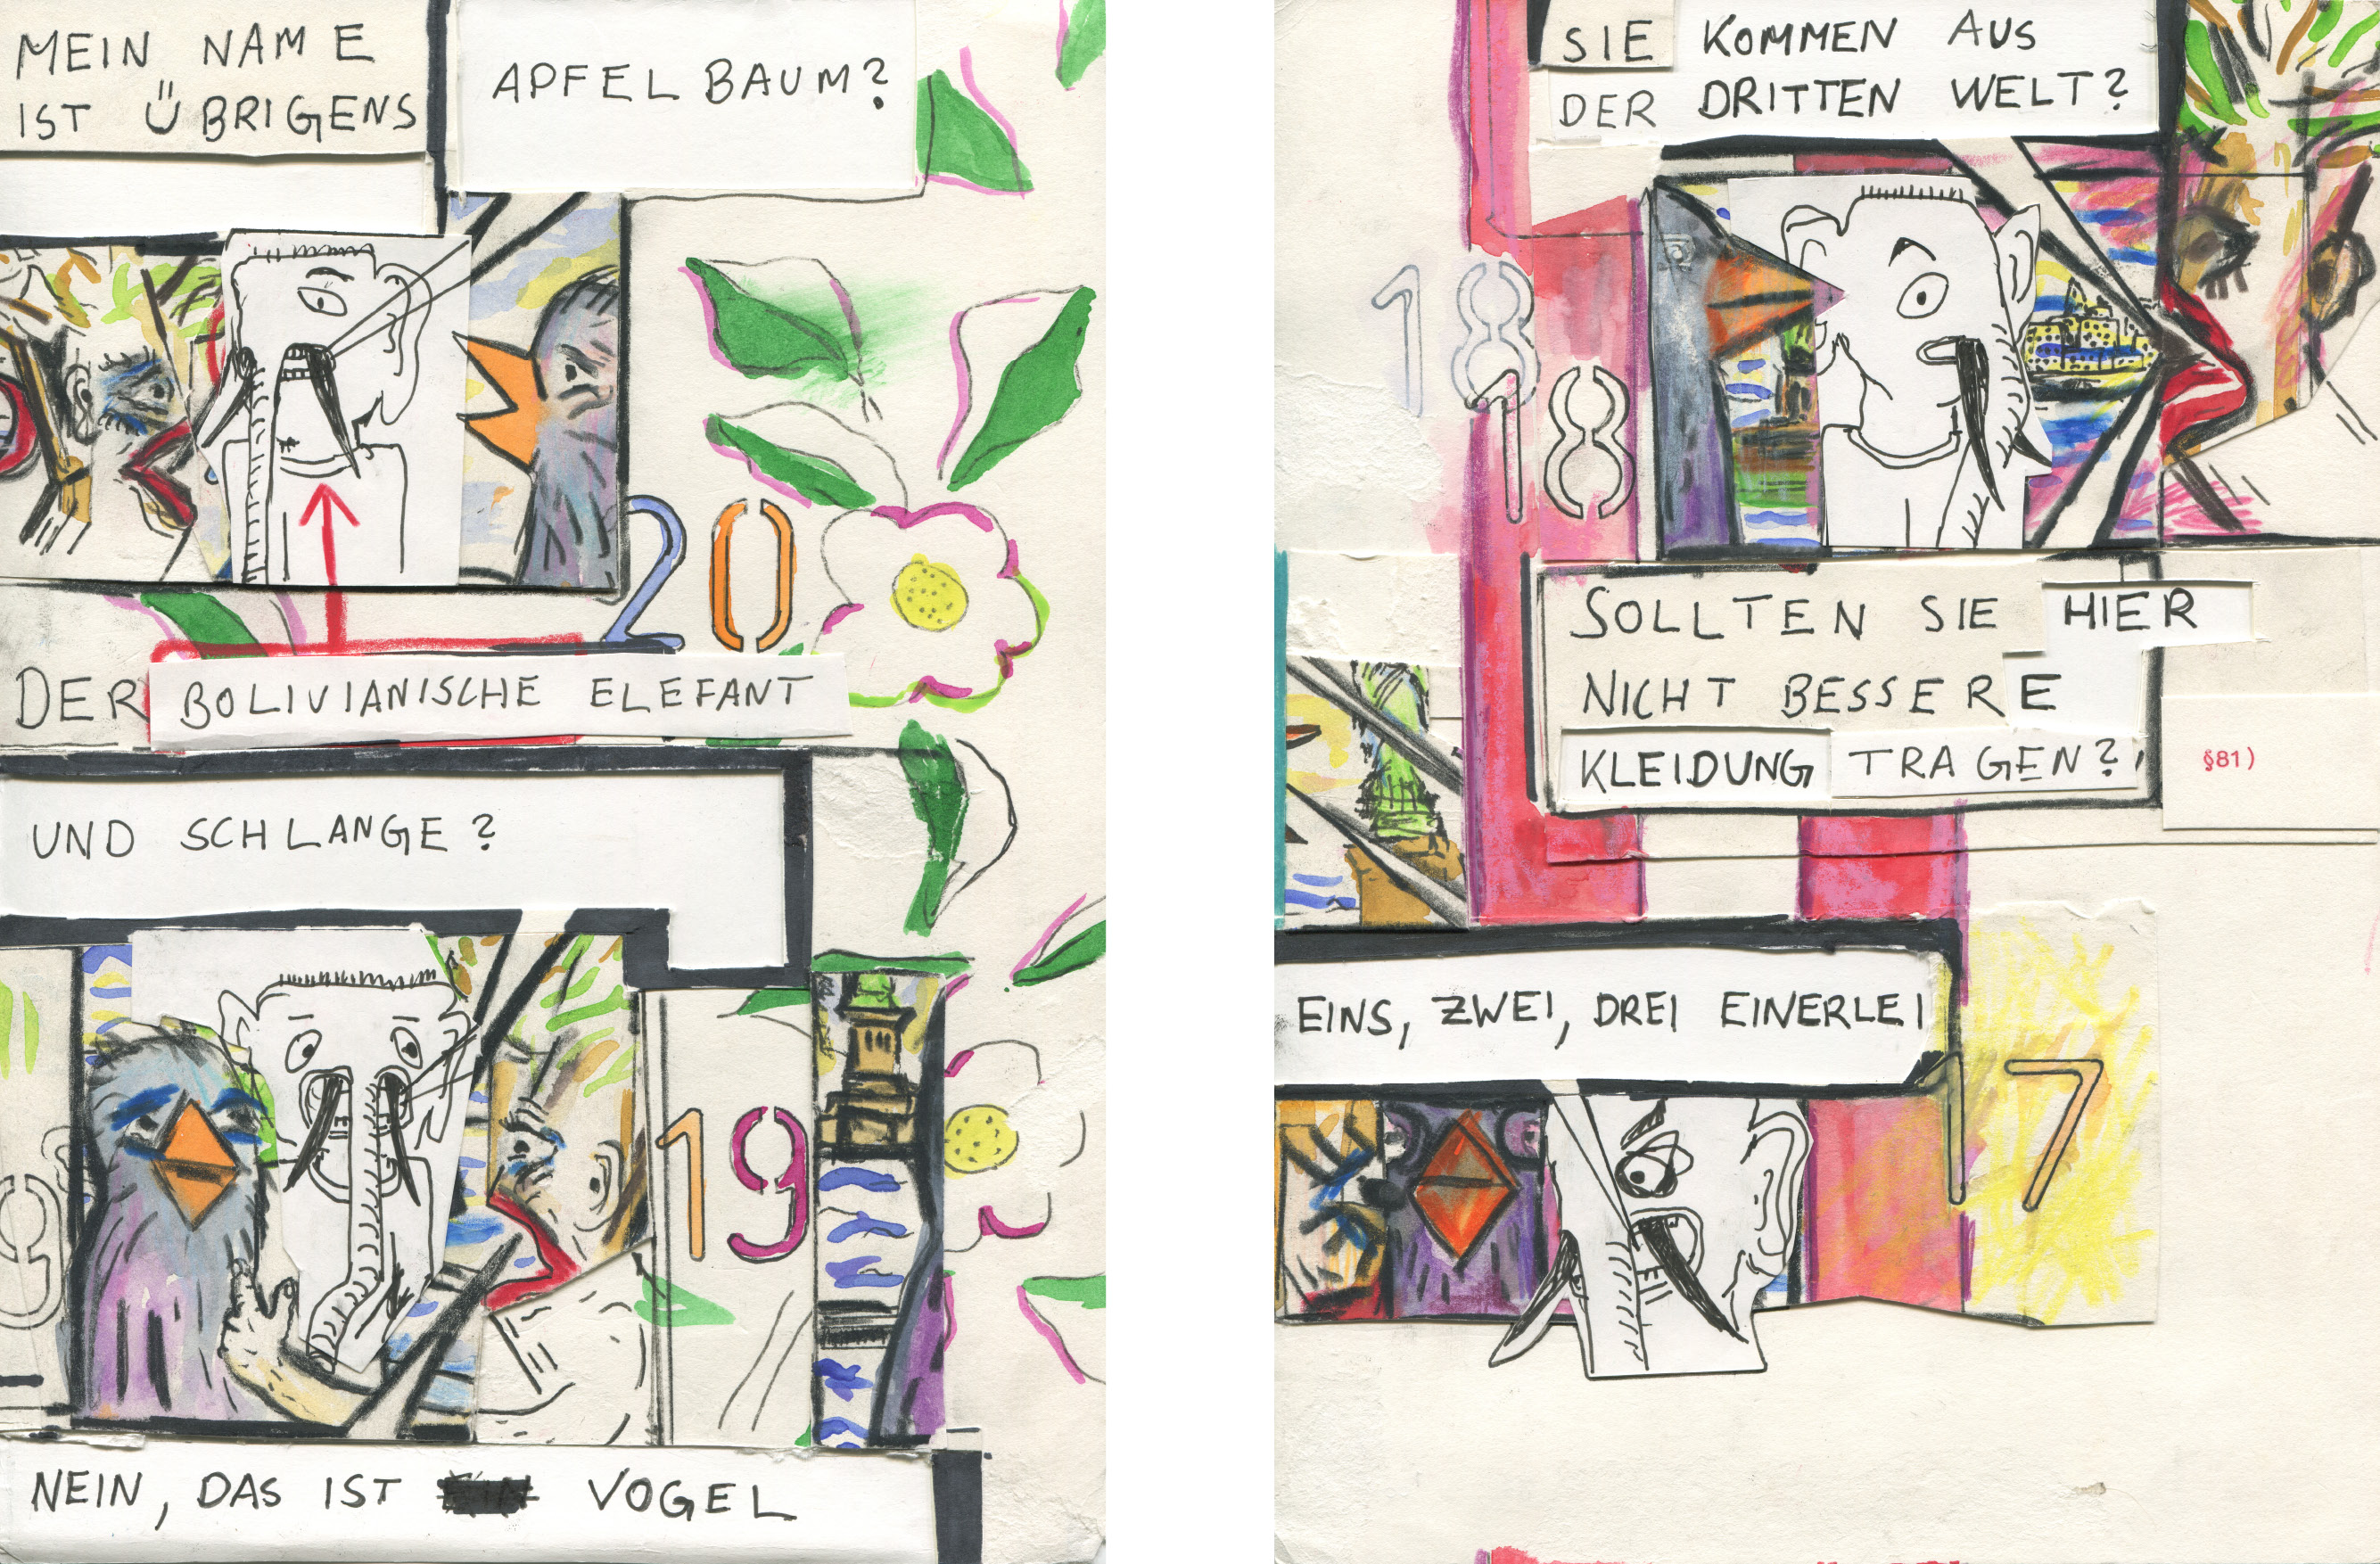 MEIN NAME
IST ÜBRIGENS
APFELBAUM?
20
DER BOLIVIANISCHE ELEFANT
UND SCHLANGE?
19
NEIN, DAS IST EIN VOGEL
SIE KOMMEN AUS
DER DRITTEN WELT?
18
18
SOLLTEN SIE HIER
NICHT BESSERE
KLEIDUNG TRAGEN?
§81)
EINS, ZWEI, DREI EINERLEI
17